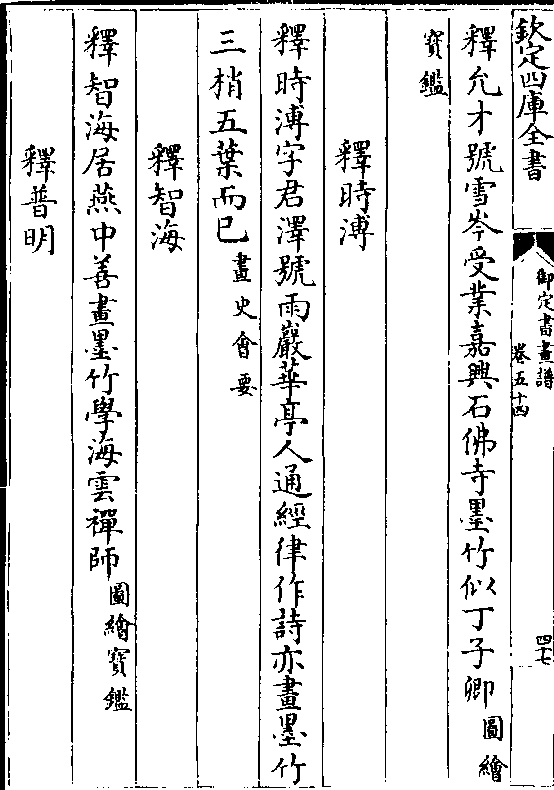 欽定四庫全書
御定書畫譜
卷五十四
四十七
釋允才號雪岑受業嘉興石佛寺墨竹似丁子卿圖繪
寶鑑
釋時溥
釋時溥字君澤號雨巖華亭人通經律作詩亦畫墨竹
三梢五葉而已畫史會要
釋智海
釋智海居燕中善畫墨竹學海雲禪師圖繪寶鑑
釋普明